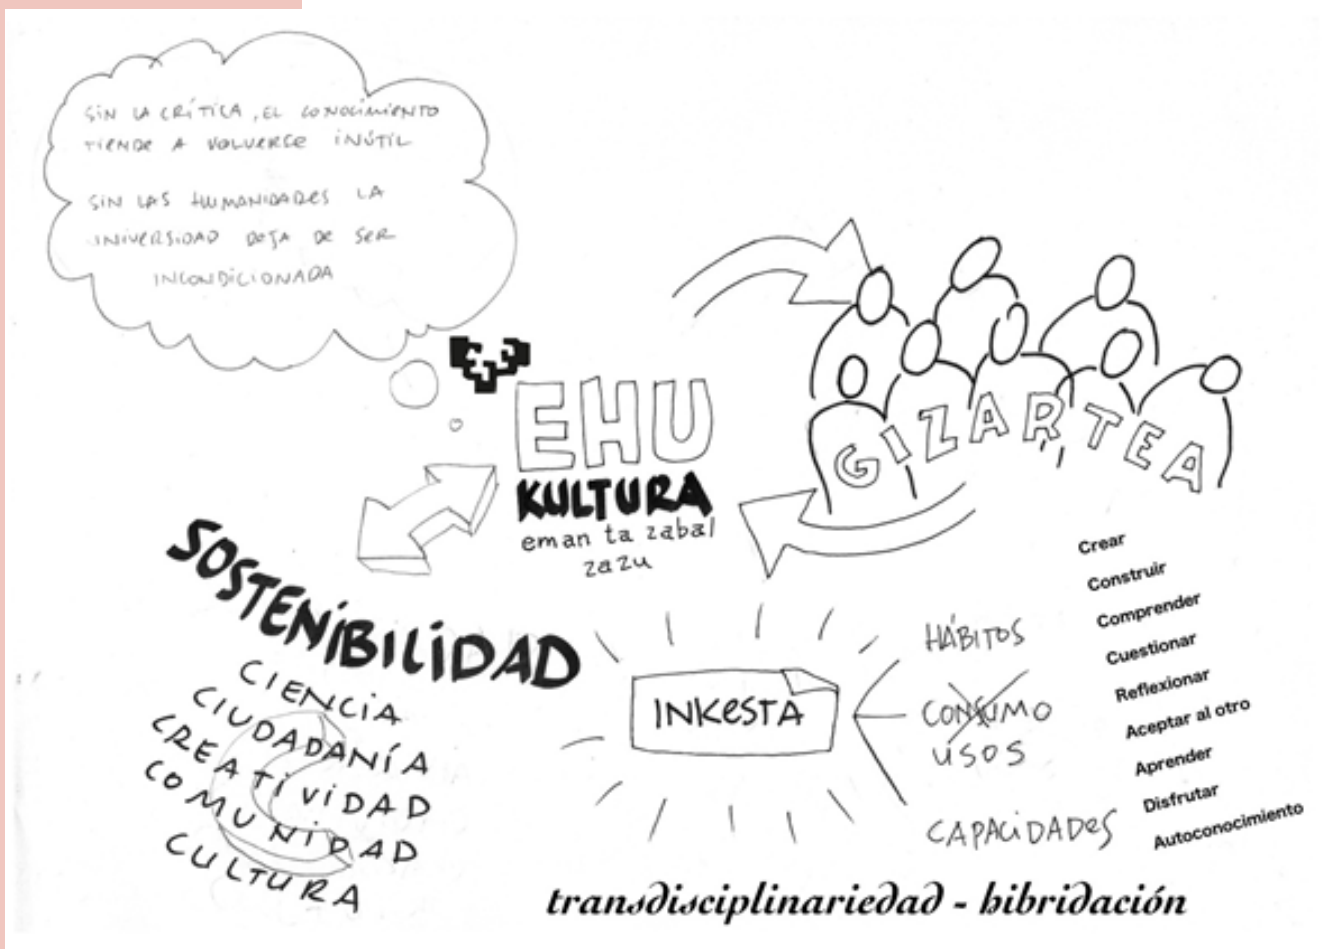 SIN LA CRÍTICA, EL CONOCIMIENTO
TIENDE A VOLVERSE INÚTIL
SIN LAS HUMANIDADES LA
UNIVERSIDAD DEJA DE SER
INCONDICIONADA
EHU
KULTURA
eman ta zabal
zazu
GIZARTEA
SOSTENIBILIDAD
CIENCIA
CIUDADANÍA
CREATIVIDAD
COMUNIDAD
CULTURA
INKESTA
HÁBITOS
CONSUMO
USOS
CAPACIDADES
Crear
Construir
Comprender
Cuestionar
Reflexionar
Aceptar al otro
Aprender
Disfrutar
Autoconocimiento
transdisciplinariedad - hibridación